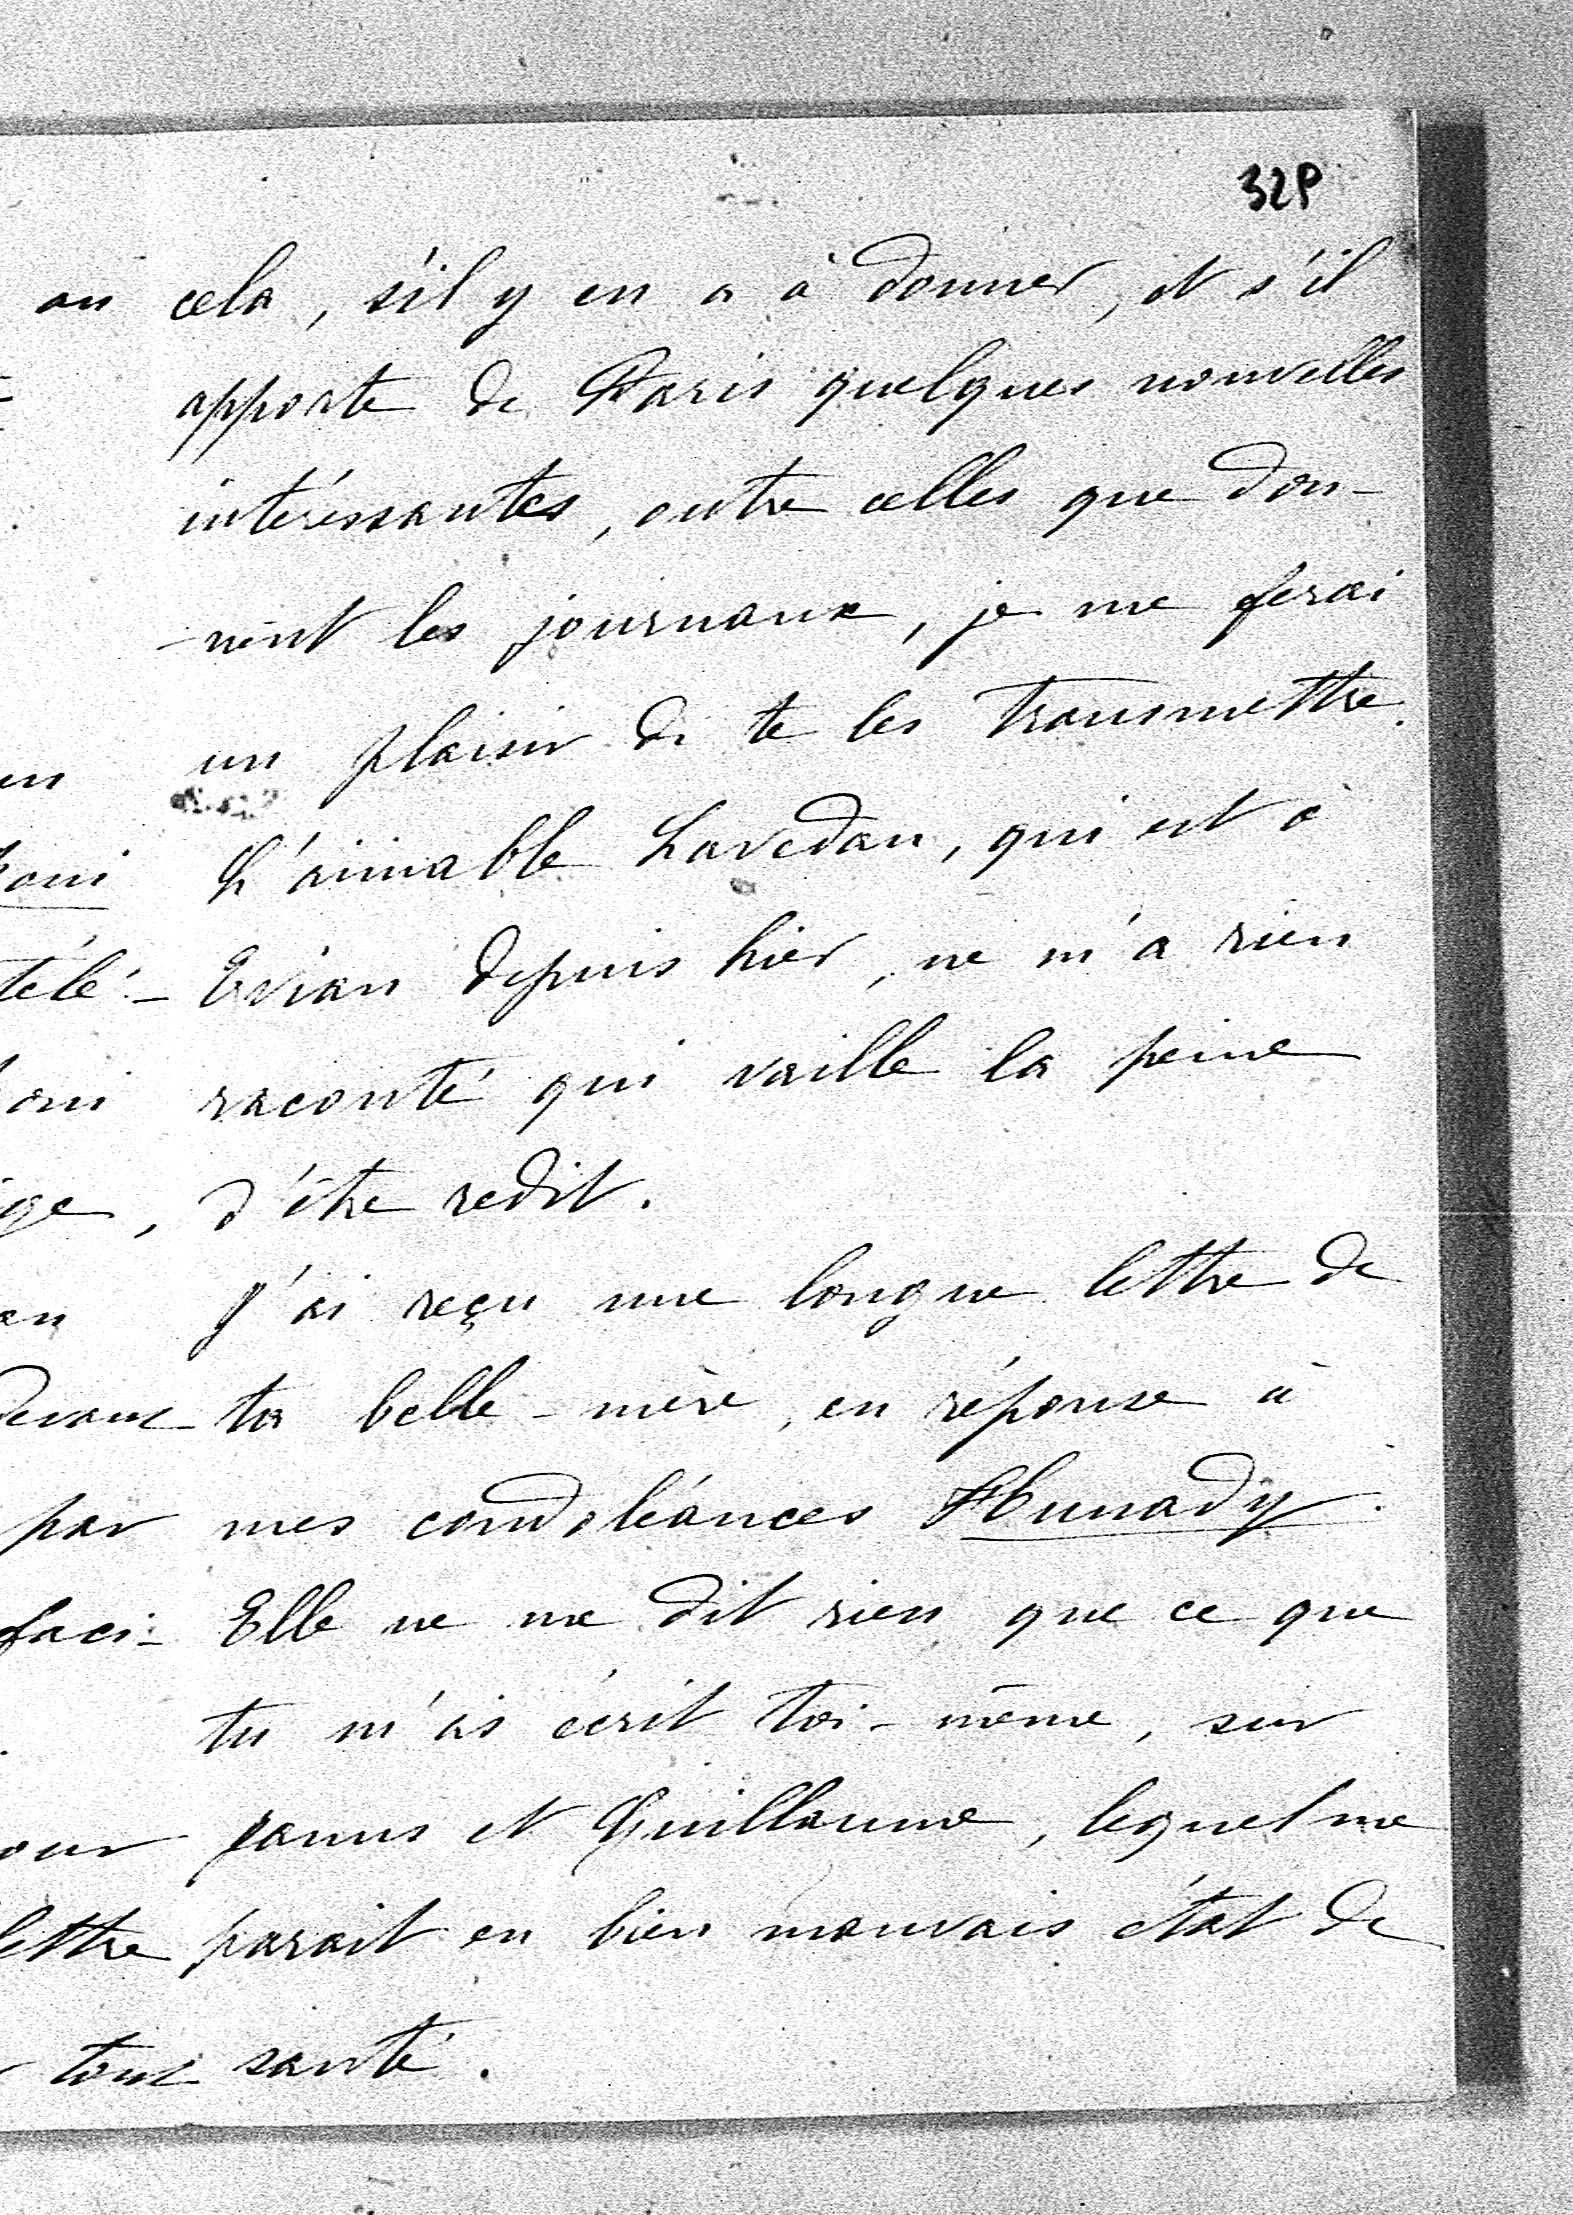 32P
cela, s'il y en a à donner, et s'il
apporte de Paris quelques nouvelles
intéressantes, outre celles que don-
-nent les journaux, je me ferai
un plaisir de te les transmettre.
L'aimable Lavedan, qui est à
Evian depuis hier, ne m'a rien
raconté qui vaille la peine
d'être redit.
J'ai reçu une longue lettre de
ta belle-mère, en réponse à
mes condoléances Hunady.
Elle ne me dit rien que ce que
tu m'as écrit toi-même, sur
et Guillaume, lequel me
parait en bien mauvais état de
santé.
an
en
télé-
ige,
en
par
faci-
our
lettre
tout